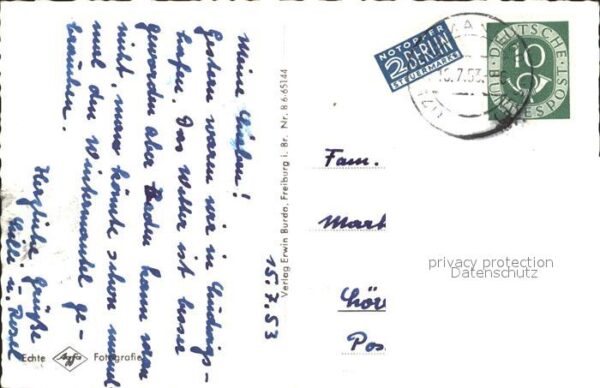 Meine Lieben!
Gestern waren wir in Ludwigs-
hafen. Das Wetter ist besser
geworden aber Baden kann man
nicht, man könnte schon manch-
mal den Wintermantel ge-
brauchen.
Herzliche Grüße
u.
15.7.53
Echte Agfa Fotografie
Verlag Erwin Burda, Freiburg i. Br. Nr. B 6·65144
NOTOPFER
2 BERLIN
STEUERMARKE
DEUTSCHE
BUNDESPOST
10
.7.53.
Fam.
Mart
Hör
Pos
privacy protection
Datenschutz